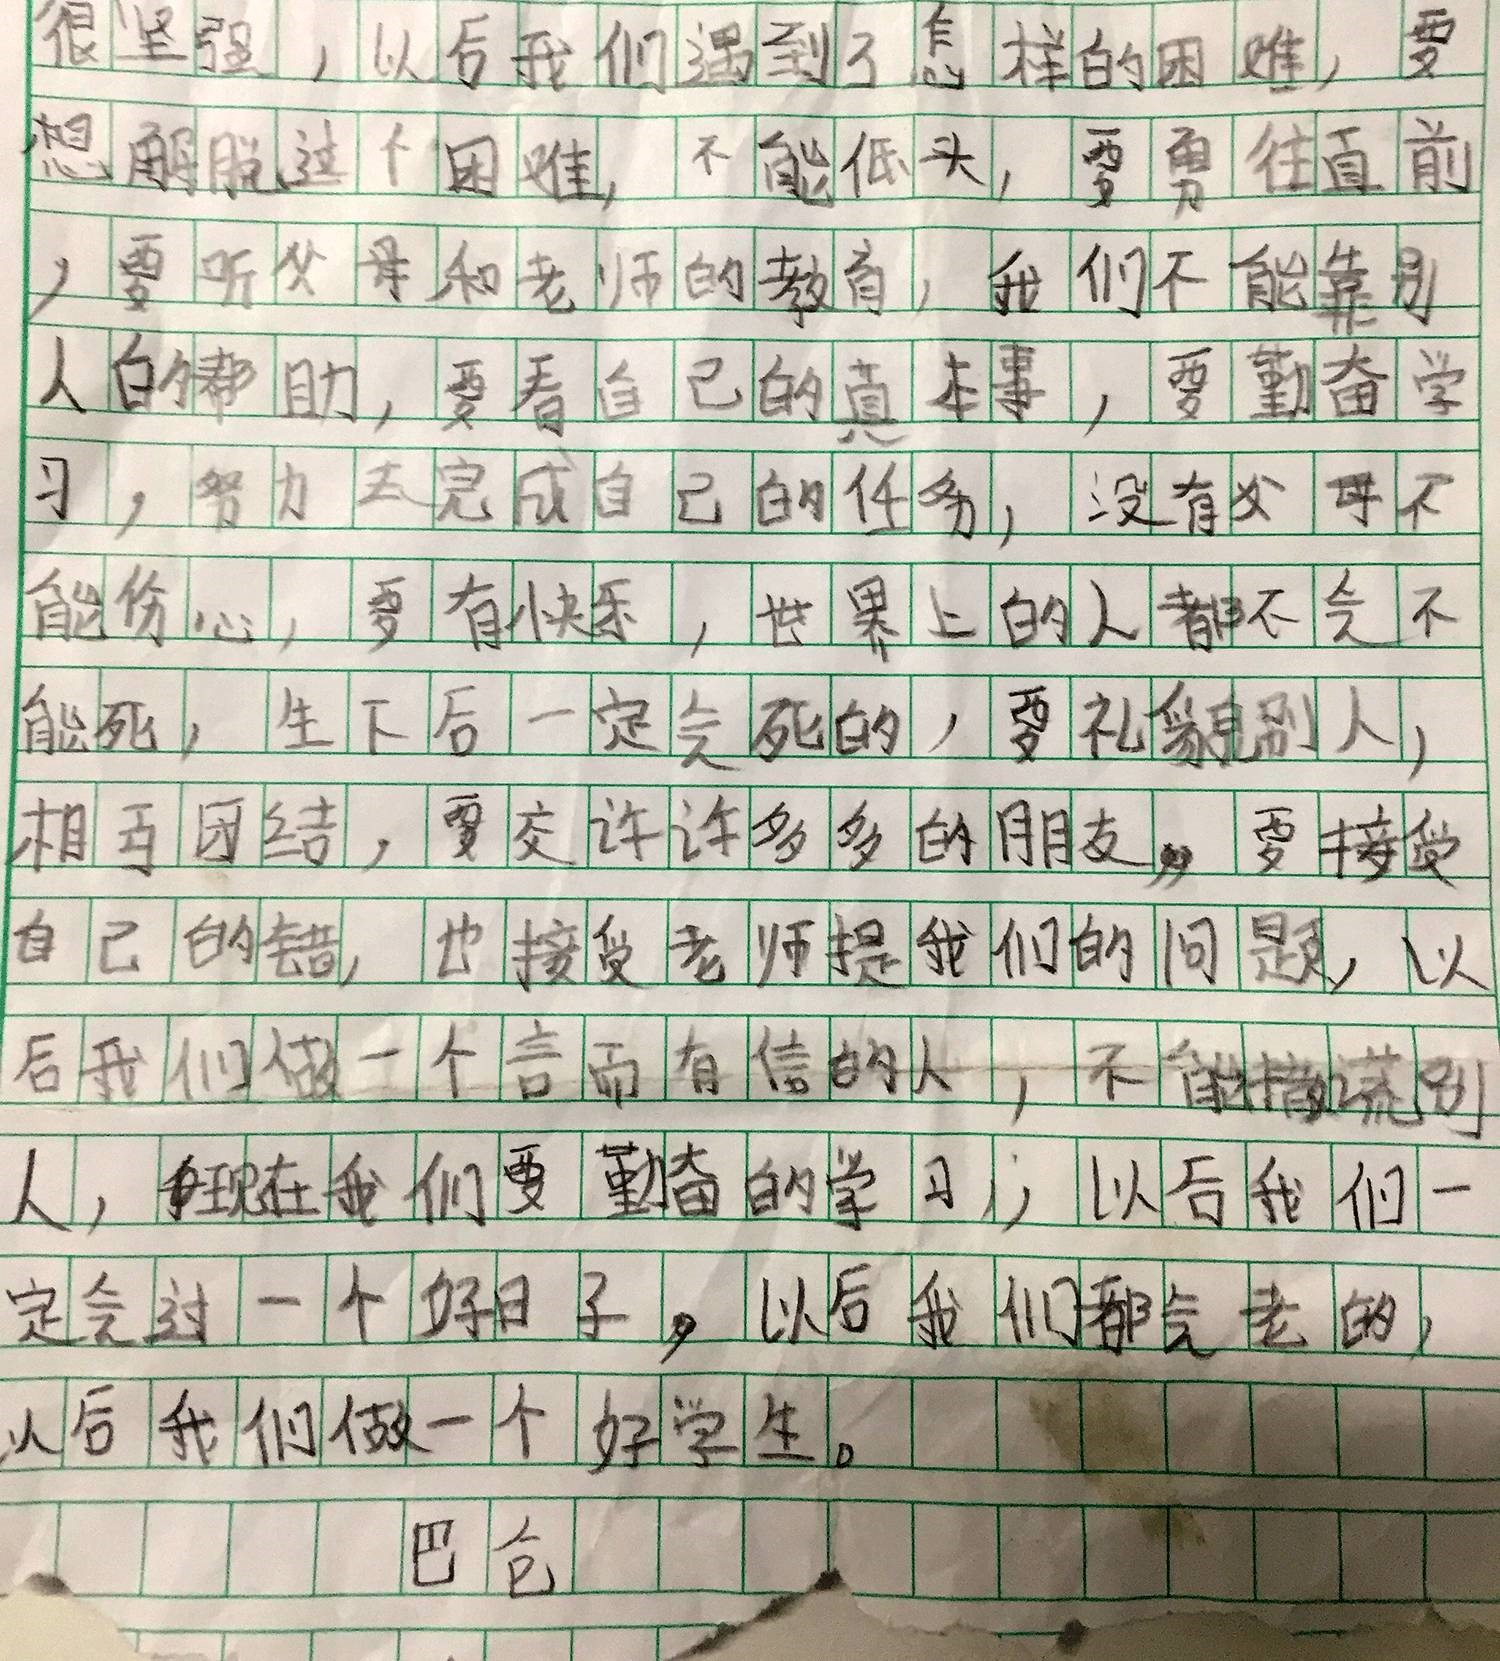 很坚强，以后我们遇到了怎样的困难，要
想解脱这个困难，不能低头，要勇往直前
，要听父母和老师的教育，我们不能靠别
人的帮助，要看自己的真本事，要勤奋学
习，努力去完成自己的任务，没有父母不
能伤心，要有快乐，世界上的人都不会不
能死，生下后一定会死的，要礼貌别人，
相互团结，要交许许多多的朋友，要接受
自己的错，也接受老师提我们的问题，以
后我们做一个言而有信的人，不能撒谎别
人，现在我们要勤奋的学习，以后我们一
定会过一个好日子，以后我们都会老的，
以后我们做一个好学生。
巴仓